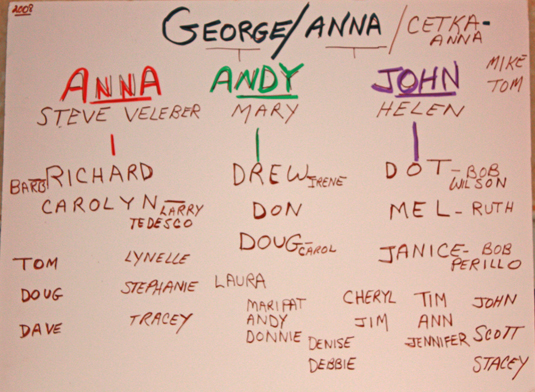 2008
GEORGE/ANNA/CETKA-
ANNA
MIKE
TOM
ANNA ANDY JOHN
STEVE VELEBER MARY HELEN
BARB RICHARD DREW IRENE DOT-BOB
WILSON
CAROLYN-LARRY DON MEL-RUTH
TEDESCO
DOUG-CAROL JANICE-BOB
PERILLO
TOM LYNELLE
DOUG STEPHANIE LAURA
DAVE TRACEY
MARIPAT CHERYL TIM JOHN
ANDY JIM ANN
DONNIE DENISE JENNIFER SCOTT
DEBBIE STACEY